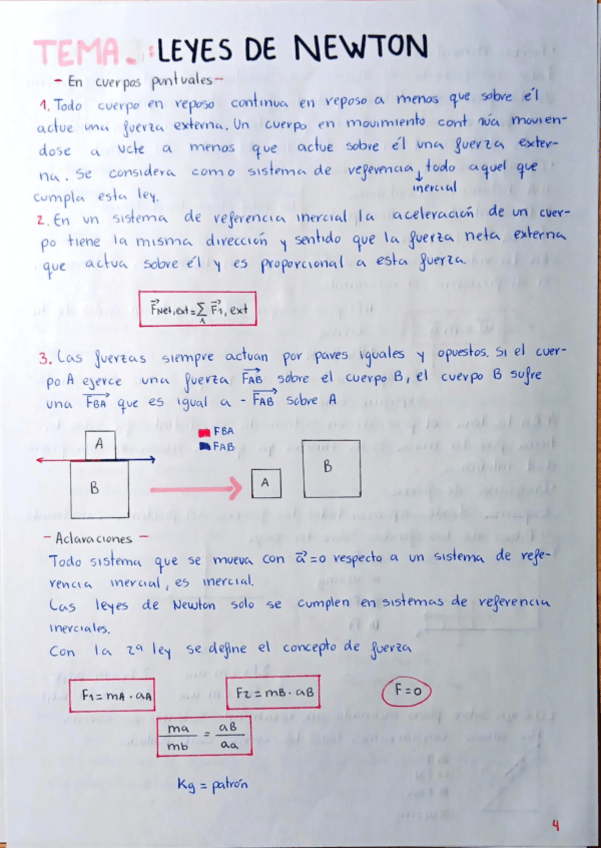 TEMA 3: LEYES DE NEWTON
- En cuerpos puntuales -
1. Todo cuerpo en reposo continua en reposo a menos que sobre él
actue una fuerza externa. Un cuerpo en movimiento continúa movien-
dose a vcte a menos que actue sobre él una fuerza exter-
na. Se considera como sistema de referencia todo aquel que
inercial
cumpla esta ley.
2. En un sistema de referencia inercial la aceleración de un cuer-
po tiene la misma dirección y sentido que la fuerza neta externa
que actua sobre él y es proporcional a esta fuerza.
F⃗Net,ext = ∑ F⃗1, ext
3. Las fuerzas siempre actuan por pares iguales y opuestos. Si el cuer-
po A ejerce una fuerza F⃗AB sobre el cuerpo B, el cuerpo B sufre
una F⃗BA que es igual a - F⃗AB sobre A
FBA
FAB
A
B
A
B
- Aclaraciones -
Todo sistema que se mueva con a⃗=0 respecto a un sistema de refe-
rencia inercial, es inercial.
Las leyes de Newton solo se cumplen en sistemas de referencia
inerciales.
Con la 2ª ley se define el concepto de fuerza
F1 = mA · aA
F2 = mB · aB
F=0
ma/mb = aB/aa
Kg = patrón
4